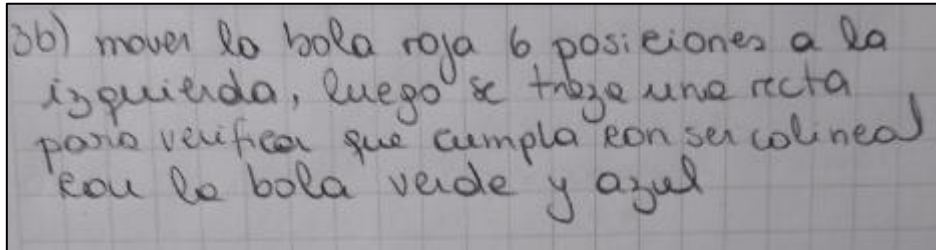 3b) mover la bola roja 6 posiciones a la
izquierda, luego se traza una recta
para verificar que cumpla con ser colineal
con la bola verde y azul